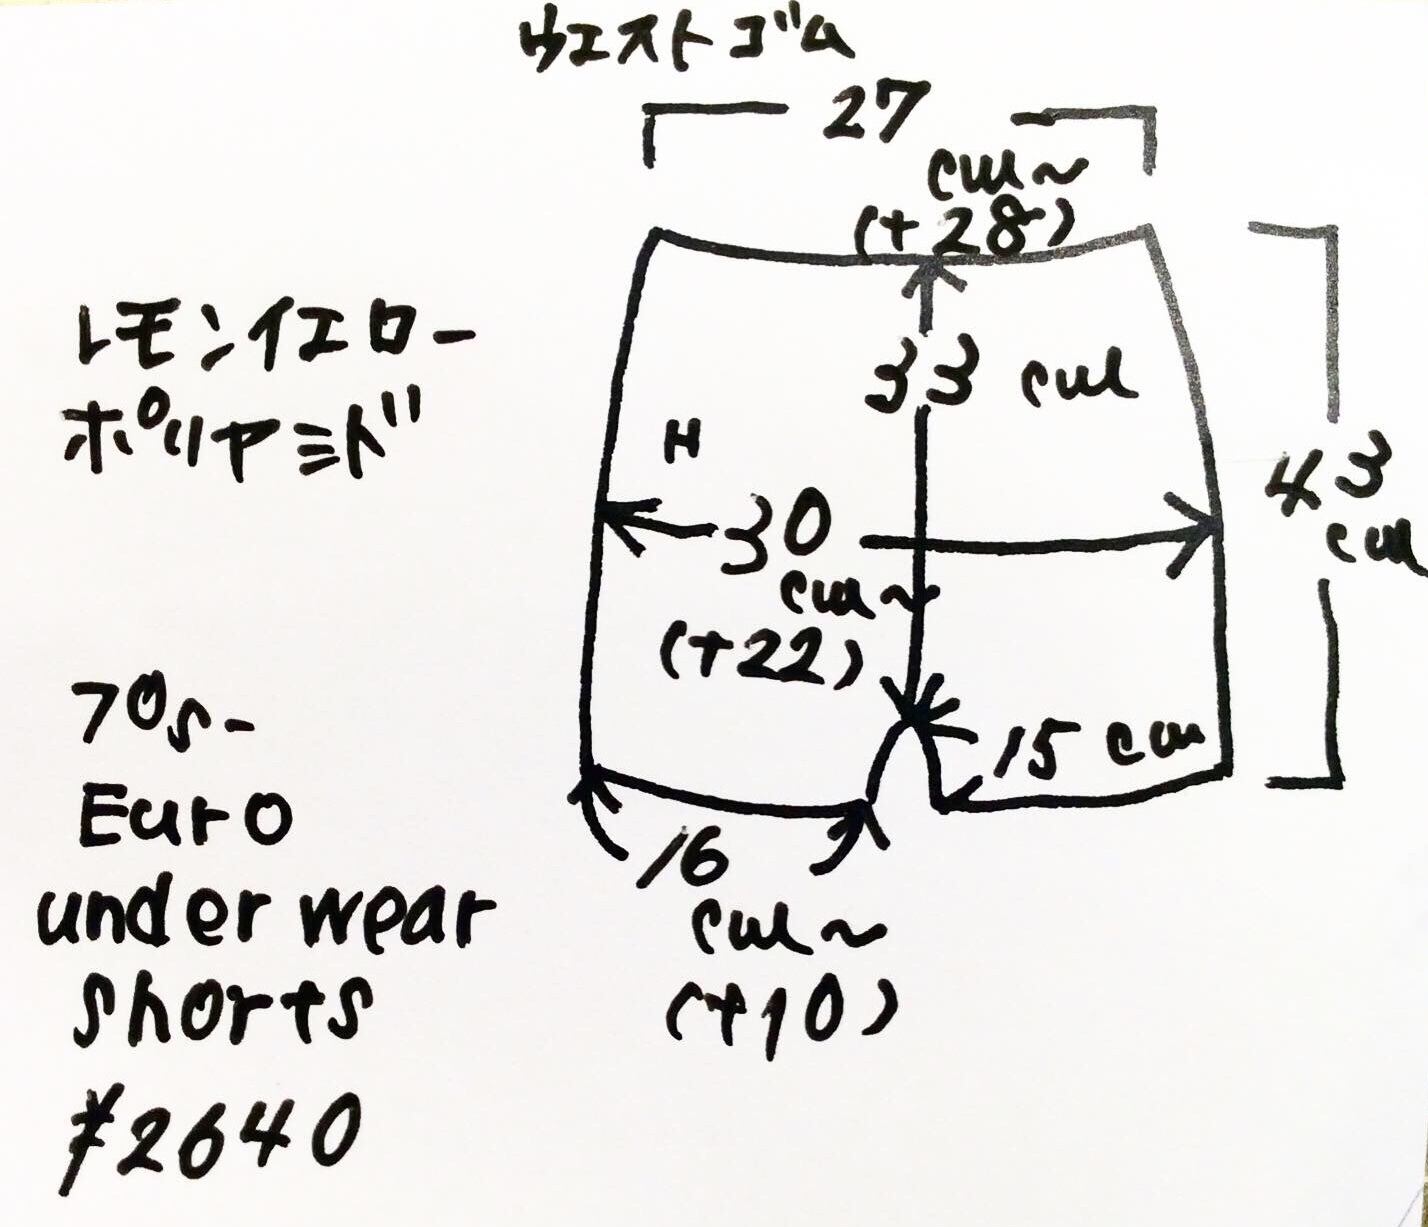 ウエストゴム
27
cm~
(+28)
レモンイエロー
ポリアミド
33 cm
H
43
cm
30
cm~
(+22)
70s-
Euro
under wear
shorts
¥2640
15 cm
16
cm~
(+10)